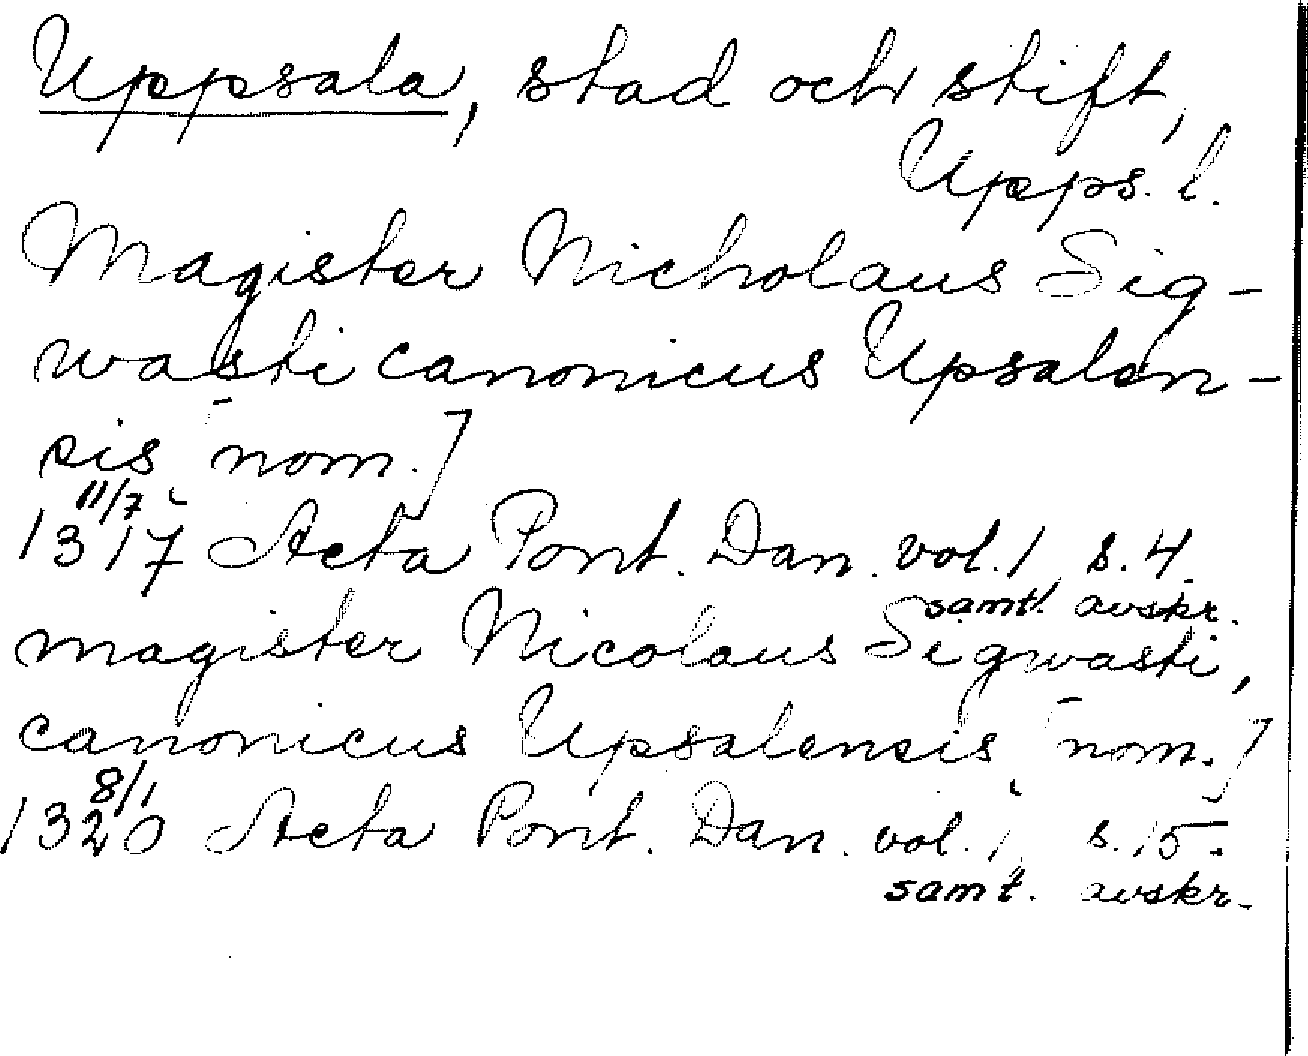 Uppsala, stad och stift,
Upps. l.
Magister Nicholaus Sig-
wasti canonicus Upsalen-
sis [nom.]
11/7
1317 Acta Pont. Dan. vol. 1 s. 4.
samt. avskr.
magister Nicolaus Sigwasti,
canonicus Upsalensis [nom.]
8/1
1320 Acta Pont. Dan. vol. 1, s. 15.
samt. avskr.